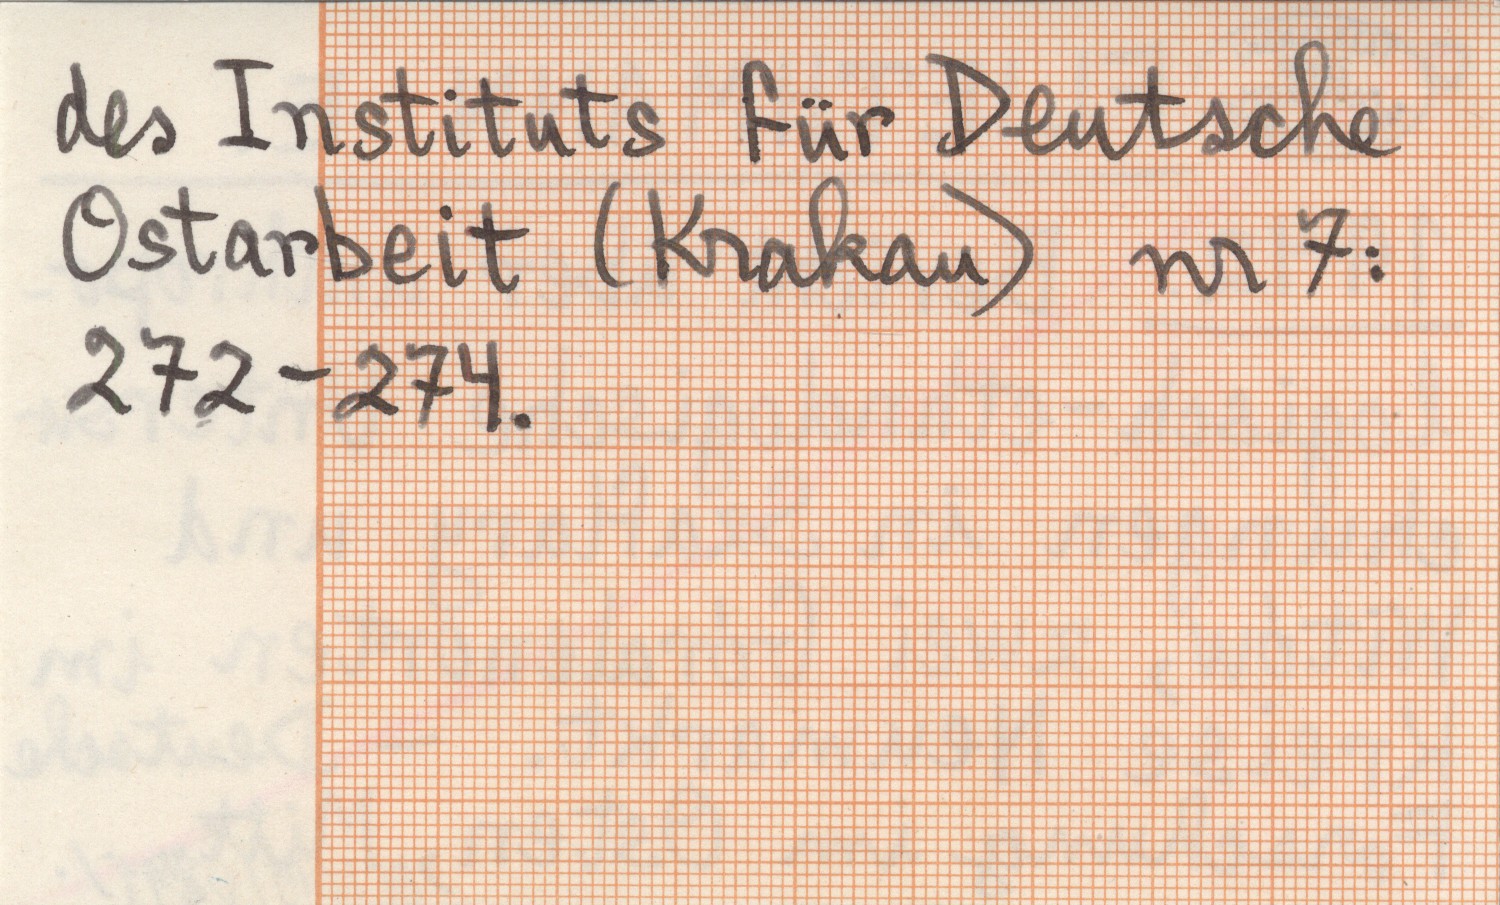 des Instituts für Deutsche
Ostarbeit (Krakau) nr 7:
272-274.